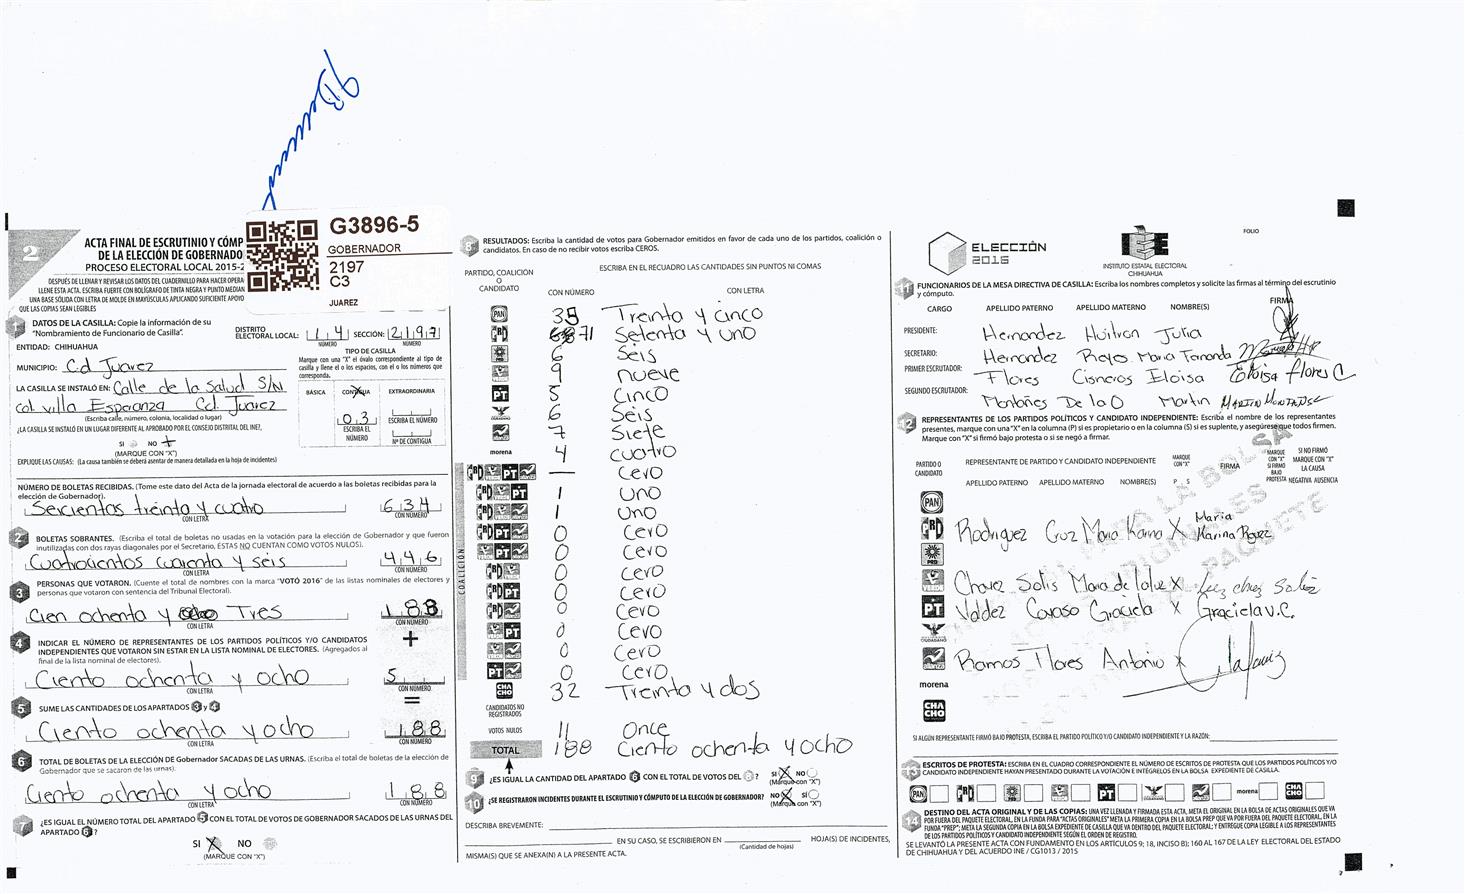 G3896-5
GOBERNADOR
2197
C3
JUAREZ
2
ACTA FINAL DE ESCRUTINIO Y CÓMP
DE LA ELECCIÓN DE GOBERNADO
PROCESO ELECTORAL LOCAL 2015-2
DESPUÉS DE LLENAR Y REVISAR LOS DATOS DEL CUADERNILLO PARA HACER OPERA
LLENE ESTA ACTA. ESCRIBA FUERTE CON BOLÍGRAFO DE TINTA NEGRA Y PUNTO MEDIAN
UNA BASE SÓLIDA CON LETRA DE MOLDE EN MAYÚSCULAS APLICANDO SUFICIENTE APOYO
QUE LAS COPIAS SEAN LEGIBLES
1 DATOS DE LA CASILLA: Copie la información de su
"Nombramiento de Funcionario de Casilla".
DISTRITO ELECTORAL LOCAL: 14 SECCIÓN: 2197
NÚMERO NÚMERO
ENTIDAD: CHIHUAHUA
MUNICIPIO: Cd Juarez
LA CASILLA SE INSTALÓ EN: Calle de la Salud S/N
col. villa Esperanza Cd. Juarez
(Escriba calle, número, colonia, localidad o lugar)
¿LA CASILLA SE INSTALÓ EN UN LUGAR DIFERENTE AL APROBADO POR EL CONSEJO DISTRITAL DEL INE?,
SI NO
(MARQUE CON "X")
EXPLIQUE LAS CAUSAS: (La causa también se deberá asentar de manera detallada en la hoja de incidentes)
TIPO DE CASILLA
Marque con una "X" el óvalo correspondiente al tipo de
casilla y llene el o los espacios, con el o los números que
corresponda.
BÁSICA CONTIGUA EXTRAORDINARIA
03
ESCRIBA EL NÚMERO
ESCRIBA EL NÚMERO
Nº DE CONTIGUA
NÚMERO DE BOLETAS RECIBIDAS. (Tome este dato del Acta de la jornada electoral de acuerdo a las boletas recibidas para la
elección de Gobernador).
Sercientas treinta y cuatro 634
CON LETRA CON NÚMERO
2 BOLETAS SOBRANTES. (Escriba el total de boletas no usadas en la votación para la elección de Gobernador y que fueron
inutilizadas con dos rayas diagonales por el Secretario, ÉSTAS NO CUENTAN COMO VOTOS NULOS).
Cuatrocientos cuarenta y seis 446
CON LETRA CON NÚMERO
3 PERSONAS QUE VOTARON. (Cuente el total de nombres con la marca "VOTÓ 2016" de las listas nominales de electores y
personas que votaron con sentencia del Tribunal Electoral).
Cien ochenta y Tres 183
CON LETRA CON NÚMERO
+
4 INDICAR EL NÚMERO DE REPRESENTANTES DE LOS PARTIDOS POLÍTICOS Y/O CANDIDATOS
INDEPENDIENTES QUE VOTARON SIN ESTAR EN LA LISTA NOMINAL DE ELECTORES. (Agregados al
final de la lista nominal de electores).
Ciento ochenta y ocho 5
CON LETRA CON NÚMERO
=
5 SUME LAS CANTIDADES DE LOS APARTADOS 3 y 4
Ciento ochenta y ocho 188
CON LETRA CON NÚMERO
6 TOTAL DE BOLETAS DE LA ELECCIÓN DE Gobernador SACADAS DE LAS URNAS. (Escriba el total de boletas de la elección de
Gobernador que se sacaron de las urnas).
Ciento ochenta y ocho 188
CON LETRA CON NÚMERO
7 ¿ES IGUAL EL NÚMERO TOTAL DEL APARTADO 5 CON EL TOTAL DE VOTOS DE GOBERNADOR SACADOS DE LAS URNAS DEL
APARTADO 6?
SI X NO
(MARQUE CON "X")
8 RESULTADOS: Escriba la cantidad de votos para Gobernador emitidos en favor de cada uno de los partidos, coalición o
candidatos. En caso de no recibir votos escriba CEROS.
PARTIDO, COALICIÓN
O
CANDIDATO
ESCRIBA EN EL RECUADRO LAS CANTIDADES SIN PUNTOS NI COMAS
CON NÚMERO CON LETRA
PAN 35 Treinta y cinco
PRD 71 Setenta y uno
6 Seis
9 nueve
PT 5 Cinco
6 Seis
7 Siete
morena 4 cuatro
COALICIÓN
— Cero
1 uno
1 uno
0 Cero
0 Cero
0 Cero
0 Cero
0 Cero
0 Cero
0 Cero
0 Cero
CHACHO 32 Treinta y dos
CANDIDATOS NO REGISTRADOS
VOTOS NULOS 11 Once
TOTAL 188 Ciento ochenta y ocho
9 ¿ES IGUAL LA CANTIDAD DEL APARTADO 6 CON EL TOTAL DE VOTOS DEL 8? SI X NO
(Marque con "X")
10 ¿SE REGISTRARON INCIDENTES DURANTE EL ESCRUTINIO Y CÓMPUTO DE LA ELECCIÓN DE GOBERNADOR? NO X SI
(Marque con "X")
DESCRIBA BREVEMENTE:
EN SU CASO, SE ESCRIBIERON EN HOJA(S) DE INCIDENTES,
(Cantidad de hojas)
MISMA(S) QUE SE ANEXA(N) A LA PRESENTE ACTA.
ELECCIÓN
2016
IEE
INSTITUTO ESTATAL ELECTORAL
CHIHUAHUA
FOLIO
11 FUNCIONARIOS DE LA MESA DIRECTIVA DE CASILLA: Escriba los nombres completos y solicite las firmas al término del escrutinio
y cómputo.
CARGO APELLIDO PATERNO APELLIDO MATERNO NOMBRE(S) FIRMA
PRESIDENTE: Hernandez Huitron Julia
SECRETARIO: Hernandez Reyes Maria Fernanda
PRIMER ESCRUTADOR: Flores Cisneros Eloisa Eloisa flores C
SEGUNDO ESCRUTADOR: Montañes De la O Martin
12 REPRESENTANTES DE LOS PARTIDOS POLÍTICOS Y CANDIDATO INDEPENDIENTE: Escriba el nombre de los representantes
presentes, marque con una "X" en la columna (P) si es propietario o en la columna (S) si es suplente, y asegúrese que todos firmen.
Marque con "X" si firmó bajo protesta o si se negó a firmar.
PARTIDO O CANDIDATO REPRESENTANTE DE PARTIDO Y CANDIDATO INDEPENDIENTE MARQUE CON "X" FIRMA MARQUE CON "X" SI FIRMÓ BAJO PROTESTA SI NO FIRMÓ MARQUE CON "X" LA CAUSA
APELLIDO PATERNO APELLIDO MATERNO NOMBRE(S) P S NEGATIVA AUSENCIA
PAN
Rodriguez Cruz Maria Karina X
PRD
Chavez Solis Maria de la luz X
PT Valdez Graciela X Graciela V.C.
Ramos Flores Antonio X
morena
CHACHO
SI ALGÚN REPRESENTANTE FIRMÓ BAJO PROTESTA, ESCRIBA EL PARTIDO POLÍTICO Y/O CANDIDATO INDEPENDIENTE Y LA RAZÓN:
13 ESCRITOS DE PROTESTA: ESCRIBA EN EL CUADRO CORRESPONDIENTE EL NÚMERO DE ESCRITOS DE PROTESTA QUE LOS PARTIDOS POLÍTICOS Y/O
CANDIDATO INDEPENDIENTE HAYAN PRESENTADO DURANTE LA VOTACIÓN E INTÉGRELOS EN LA BOLSA EXPEDIENTE DE CASILLA.
PAN PRD PT morena CHACHO
14 DESTINO DEL ACTA ORIGINAL Y DE LAS COPIAS: UNA VEZ LLENADA Y FIRMADA ESTA ACTA, META EL ORIGINAL EN LA BOLSA DE ACTAS ORIGINALES QUE VA
POR FUERA DEL PAQUETE ELECTORAL, EN LA FUNDA PARA "ACTAS ORIGINALES" META LA PRIMERA COPIA EN LA BOLSA PREP QUE VA POR FUERA DEL PAQUETE ELECTORAL, EN LA
FUNDA "PREP"; META LA SEGUNDA COPIA EN LA BOLSA EXPEDIENTE DE CASILLA QUE VA DENTRO DEL PAQUETE ELECTORAL; Y ENTREGUE COPIA LEGIBLE A LOS REPRESENTANTES
DE LOS PARTIDOS POLÍTICOS Y CANDIDATO INDEPENDIENTE SEGÚN EL ORDEN DE REGISTRO.
SE LEVANTÓ LA PRESENTE ACTA CON FUNDAMENTO EN LOS ARTÍCULOS 9; 18, INCISO B); 160 AL 167 DE LA LEY ELECTORAL DEL ESTADO
DE CHIHUAHUA Y DEL ACUERDO INE / CG1013 / 2015